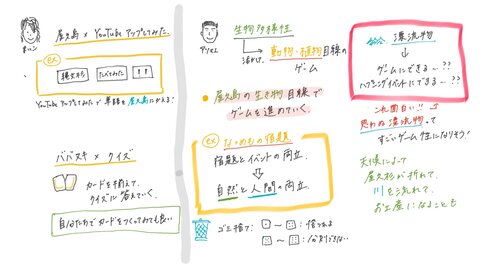 屋久島 × YouTube アップしてみた。
ex
縄文杉
たべてみた
!!
YouTube アップしてみたで 単語を屋久島にかえる!
ババヌキ × クイズ
カードを揃えて、
クイズに答えていく。
自分たちでカードをつくってみても良い
アソビエ
生物多様性
→ 動物・植物目線の
ゲーム
屋久島の生き物目線で
ゲームを進めていく。
ex なつやすみの宿題
宿題とイベントの両立
⇩
自然と人間の両立
ゴミ捨て:
~ : 捨てれる
~ : 分別できない
漂流物
↓
ゲームにできる〜??
ハプニングイベントにできる〜??
これ面白い!!
思わぬ漂流物って
すごいゲーム性になりそう!
天候によって
屋久杉が折れて、
川を流れて、
お土産になることも